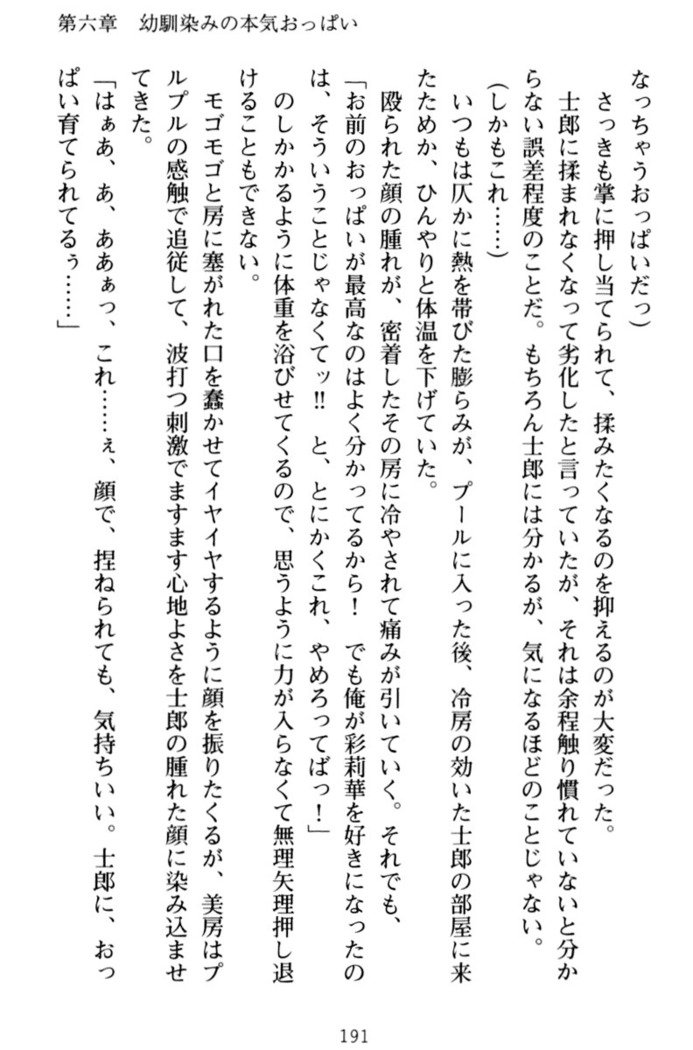 第六章 幼馴染みの本気おっぱい
なっちゃうおっぱいだっ)
さっきも掌に押し当てられて、揉みたくなるのを抑えるのが大変だった。
士郎に揉まれなくなって劣化したと言っていたが、それは余程触り慣れていないと分か
らない誤差程度のことだ。もちろん士郎には分かるが、気になるほどのことじゃない。
(しかもこれ……)
いつもは仄かに熱を帯びた膨らみが、プールに入った後、冷房の効いた士郎の部屋に来
たためか、ひんやりと体温を下げていた。
殴られた顔の腫れが、密着したその房に冷やされて痛みが引いていく。それでも、
「お前のおっぱいが最高なのはよく分かってるから! でも俺が彩莉華を好きになったの
は、そういうことじゃなくてッ!! と、とにかくこれ、やめろってばっ!」
のしかかるように体重を浴びせてくるので、思うように力が入らなくて無理矢理押し退
けることもできない。
モゴモゴと房に塞がれた口を蠢かせてイヤイヤするように顔を振りたくるが、美房はプ
ルプルの感触で追従して、波打つ刺激でますます心地よさを士郎の腫れた顔に染み込ませ
てきた。
「はぁあ、あ、ああぁっ、これ……ぇ、顔で、捏ねられても、気持ちいい。士郎に、おっ
ぱい育てられてるぅ……」
191